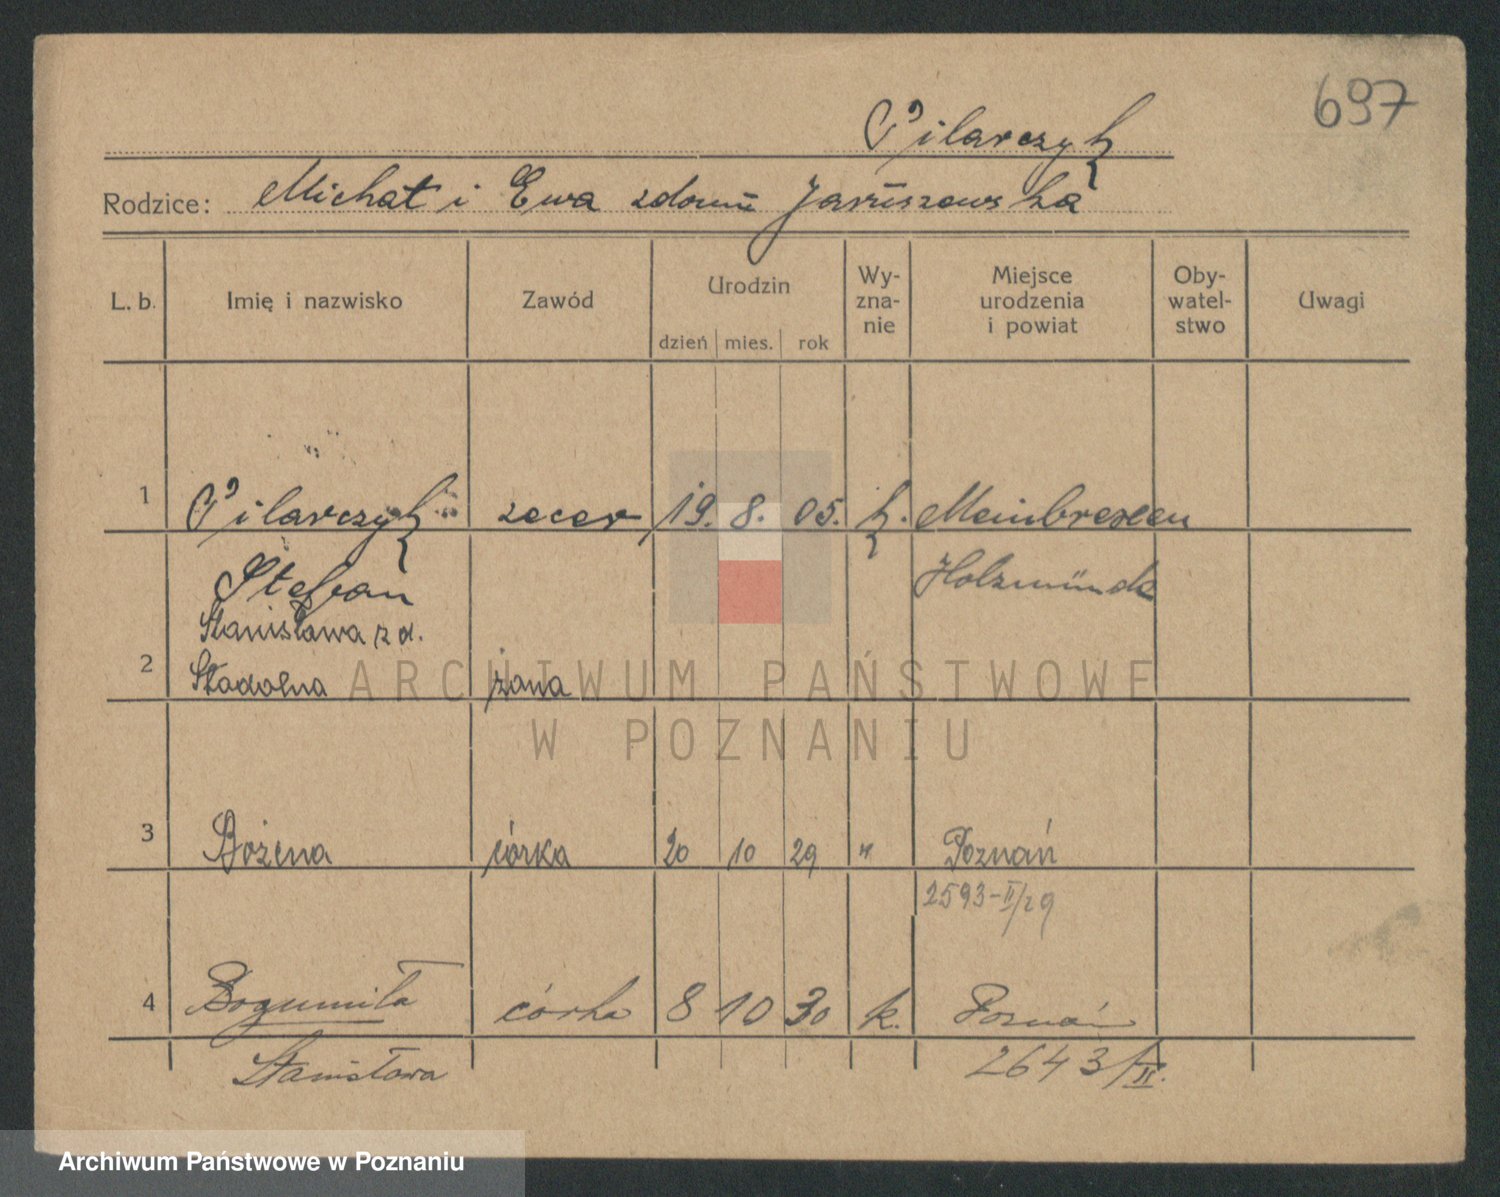 697
Pilarczyk
Rodzice: Michał i Ewa zdomu Jaruszewska
L. b. Imię i nazwisko Zawód Urodzin dzień mies. rok Wy-zna-nie Miejsce urodzenia i powiat Oby-watel-stwo Uwagi
1 Pilarczyk zecer 19. 8. 05. k.
Stefan
Stanisława z d.
2 żona
3 Bożena córka 20 10 29 " Poznań
2593-II/29
4 Bogumiła córka 8 10 30 k. Poznań
Stanisława 2643/II.
ARCHIWUM PAŃSTWOWE
W POZNANIU
Archiwum Państwowe w Poznaniu